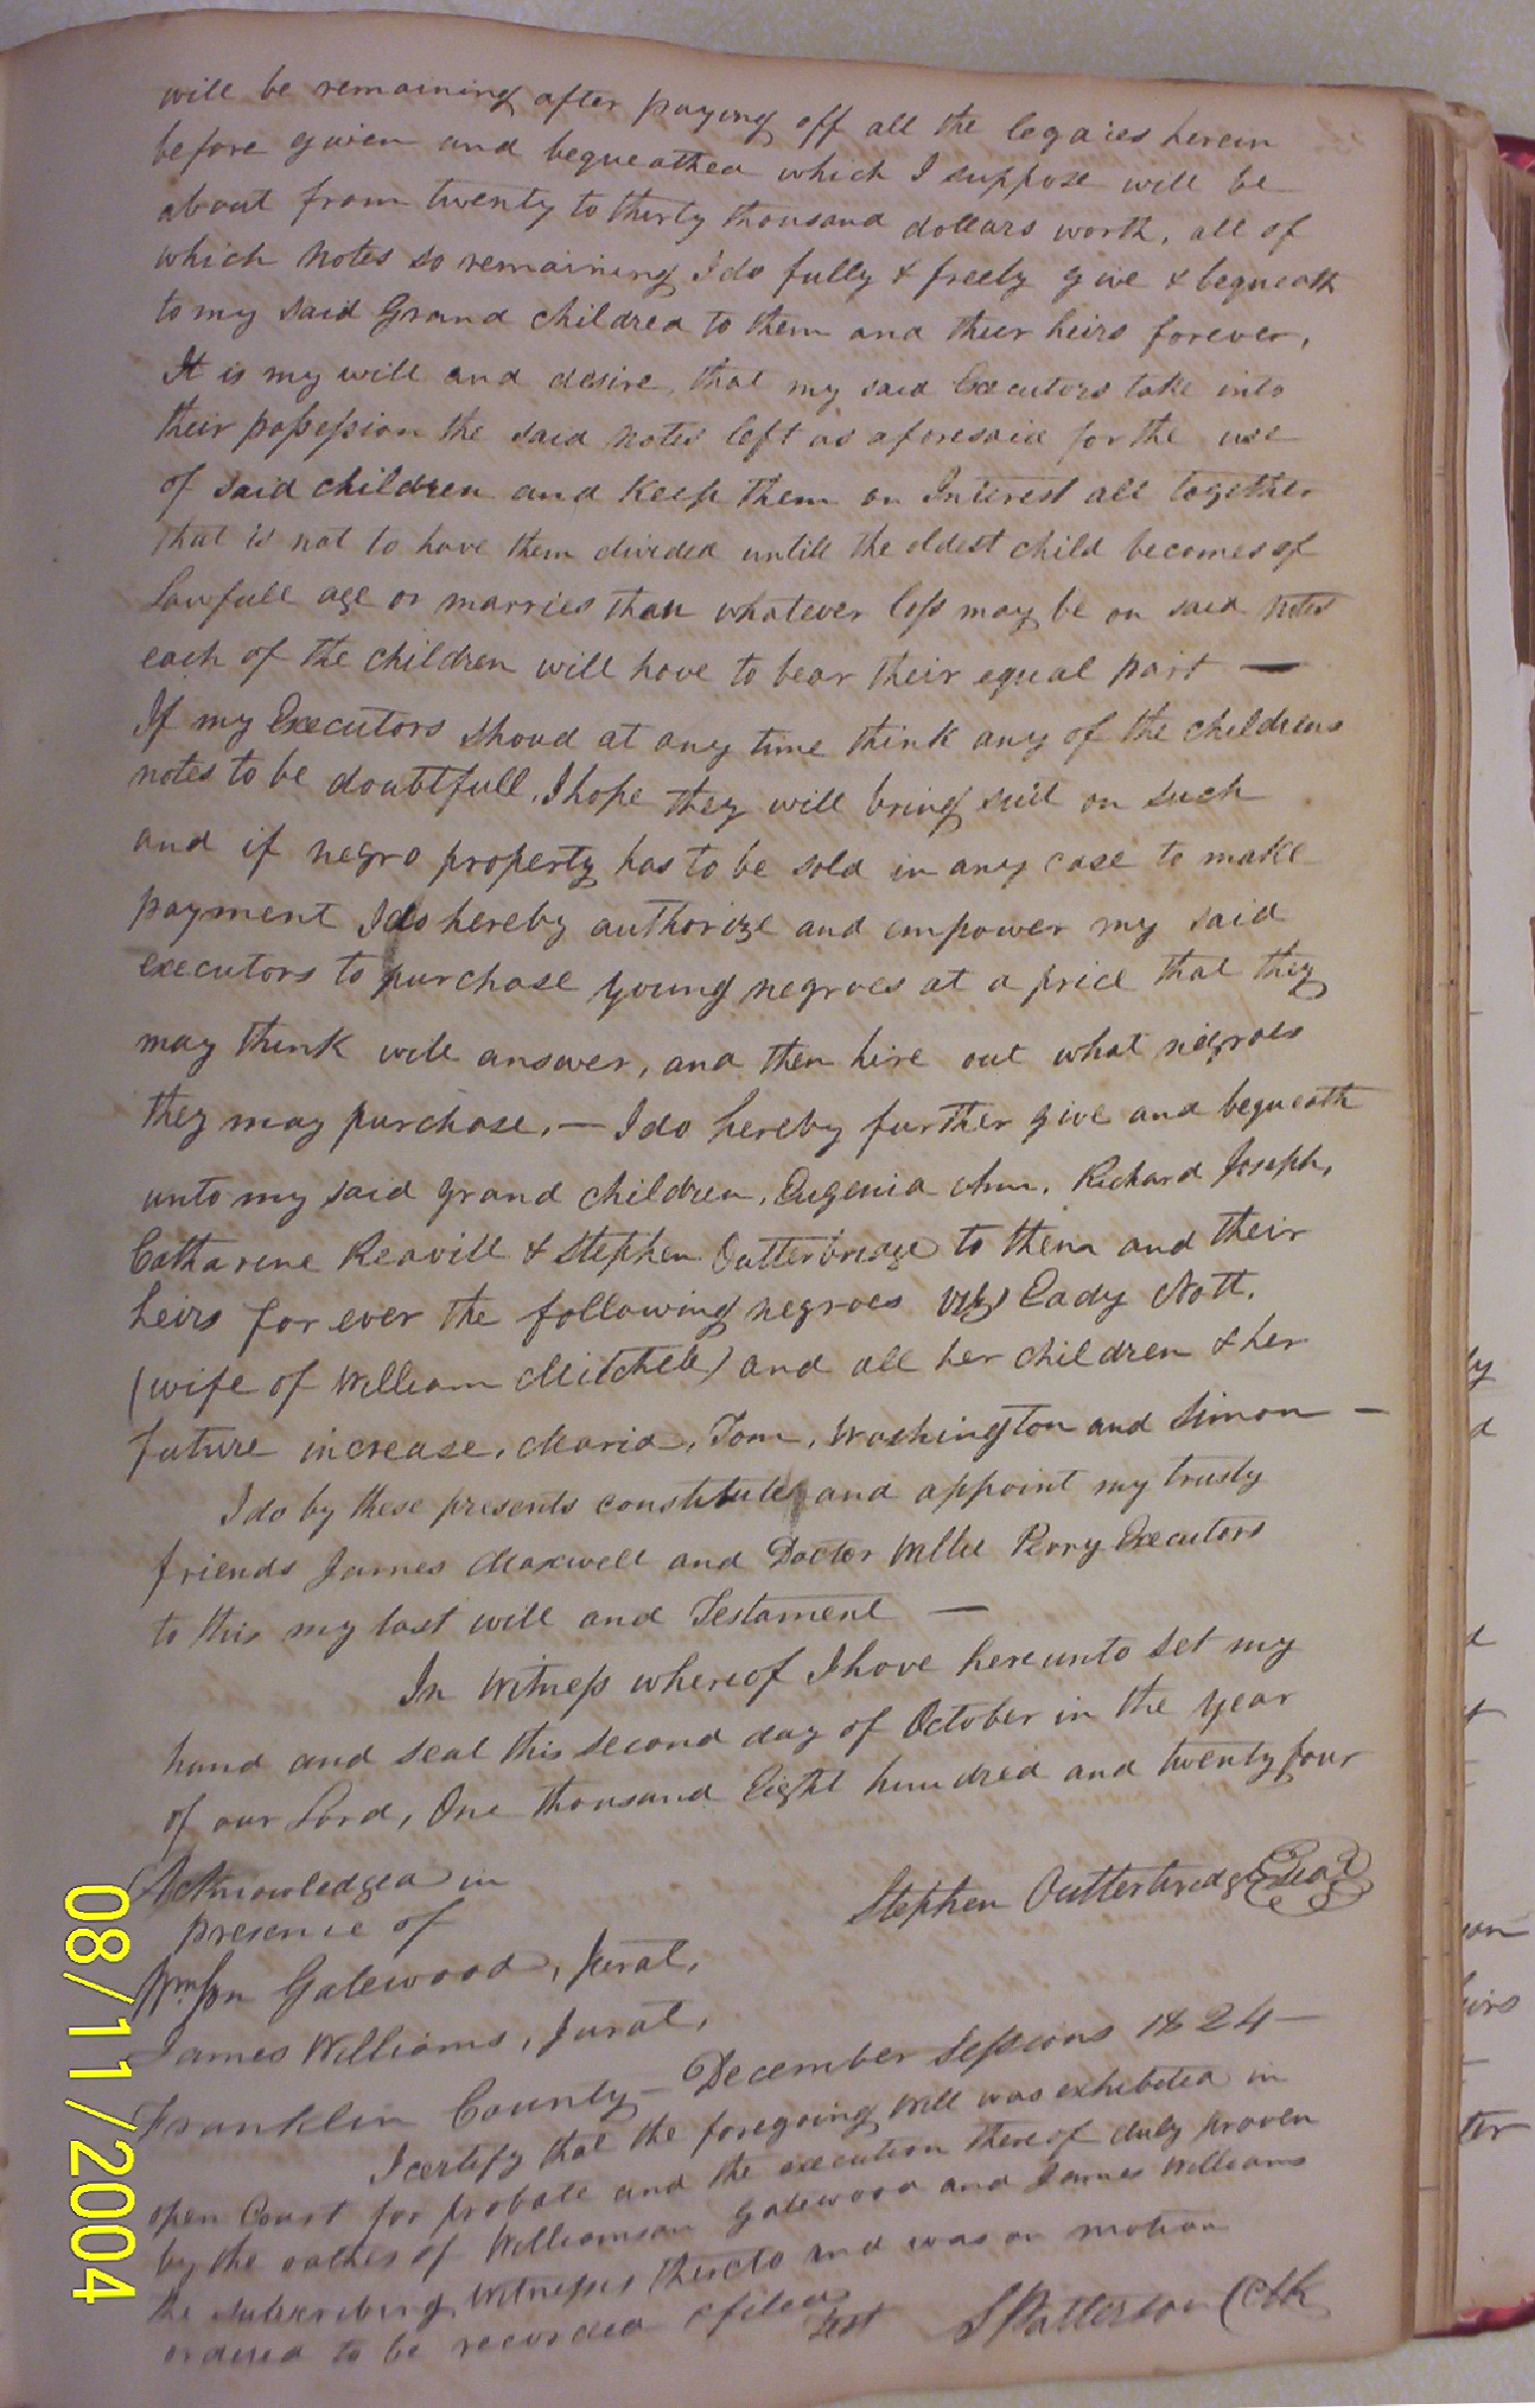 will be remaining after paying off all the legacies herein
before given and bequeathed which I suppose will be
about from twenty to thirty thousand dollars worth, all of
which notes so remaining I do fully & freely give & bequeath
to my said Grand children to them and their heirs forever,
It is my will and desire, that my said Executors take into
their possession the said notes left as aforesaid for the use
of said children and Keep them on Interest all together
that is not to have them divided untill the oldest child becomes of
Lawfull age or marries than whatever loss may be on said notes
each of the children will have to bear their equal part —
If my Executors shoud at any time think any of the childrens
notes to be doubtfull, I hope they will bring suit on such
and if negro property has to be sold in any case to make
payment I do hereby authorize and empower my said
executors to purchase young negroes at a price that they
may think will answer, and then hire out what negroes
they may purchase. — I do hereby further give and bequeath
unto my said grand children, Eugenia Ann, Richard Joseph,
Catharine Reavill & Stephen Outterbridge to them and their
heirs for ever the following negroes Viz) Eady Nott.
(wife of William Mitchell) and all her children & her
future increase, Maria, Tom, Washington and Simon —
I do by these presents constitute and appoint my trusty
friends James Maxwell and Doctor Willie Perry Executors
to this my last will and Testament —
In Witness whereof I have hereunto set my
hand and seal this second day of October in the year
of our Lord, One thousand Eight hundred and twenty four
Acknowledged in
presence of
Stephen Outterbridge Seal
Wmson Gatewood, Jurat,
James Williams, Jurat,
Franklin County — December Sessions 1824 —
I certify that the foregoing Will was exhibited in
open Court for probate and the execution thereof duly proven
by the oathes of Williamson Gatewood and James Williams
the subscribing Witnesses thereto and was on motion
ordered to be recorded & filed
Test S Patterson Clk
08/11/2004